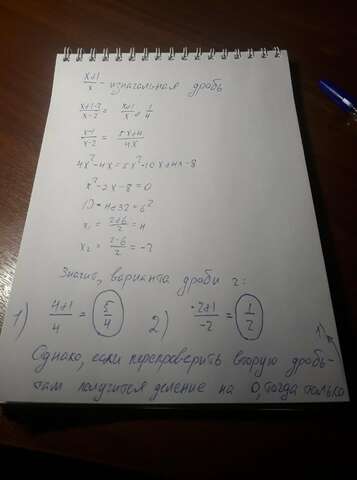 x+1/x - изначальная дробь
x+1-2/x-2 = x+1/x + 1/4
x-1/x-2 = 5x+4/4x
4x²-4x=5x²-10x+4x-8
x²-2x-8=0
D=4+32=6²
x₁=2+6/2=4
x₂=2-6/2=-2
Значит, варианта дроби 2:
1) 4+1/4 = 5/4 2) -2+1/-2 = 1/2
1)
Однако, если перепроверить вторую дробь-
там получится деление на 0, тогда только